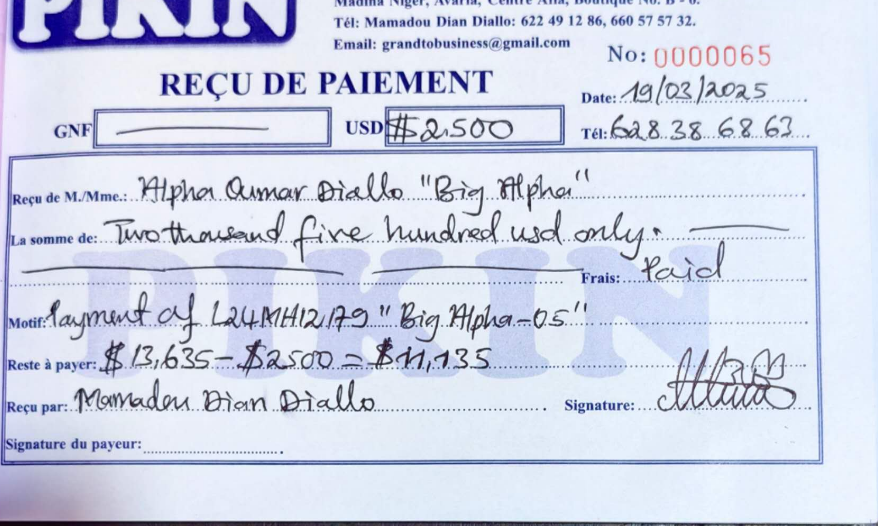 PIKIN
Madina Niger, Avaria, Centre Alfa, Boutique No. B - 6.
Tél: Mamadou Dian Diallo: 622 49 12 86, 660 57 57 32.
Email: grandtobusiness@gmail.com
No: 0000065
REÇU DE PAIEMENT
Date: 19/03/2025
GNF
USD $2.500
Tél: 628.38.68.63
Reçu de M./Mme.: Alpha Oumar Diallo "Big Alpha"
La somme de: Two thousand five hundred usd only.
Frais: Paid
Motif: Payment of L24MH12179 "Big Alpha-05"
Reste à payer: $13,635 - $2500 = $11,135
Reçu par: Mamadou Dian Diallo
Signature:
Signature du payeur:
PIKIN